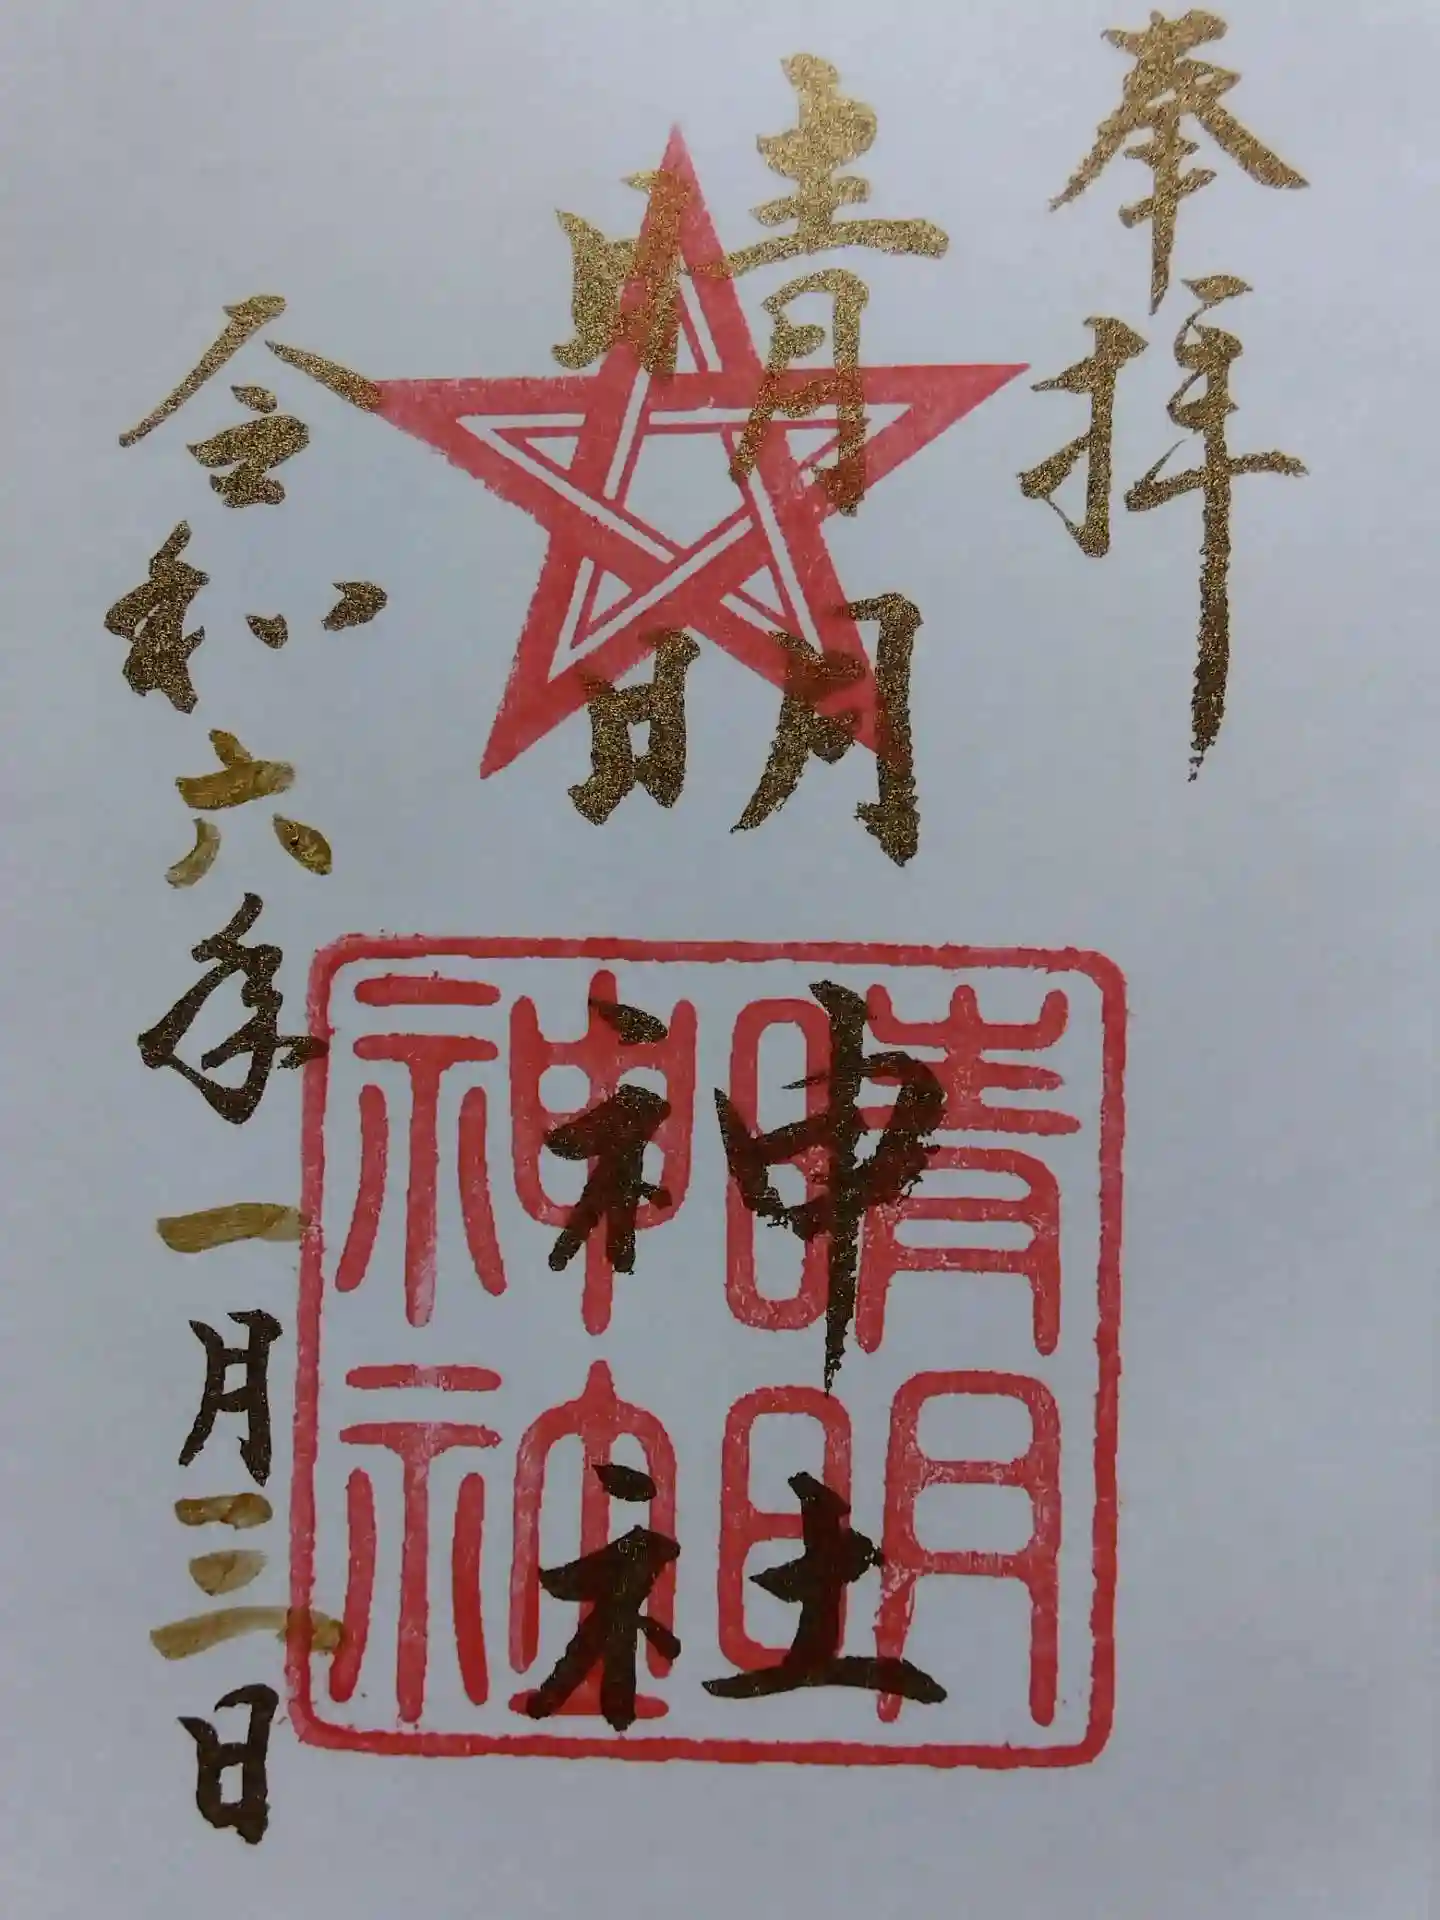 奉拝
晴明神社
晴明神社
令和六年一月三日